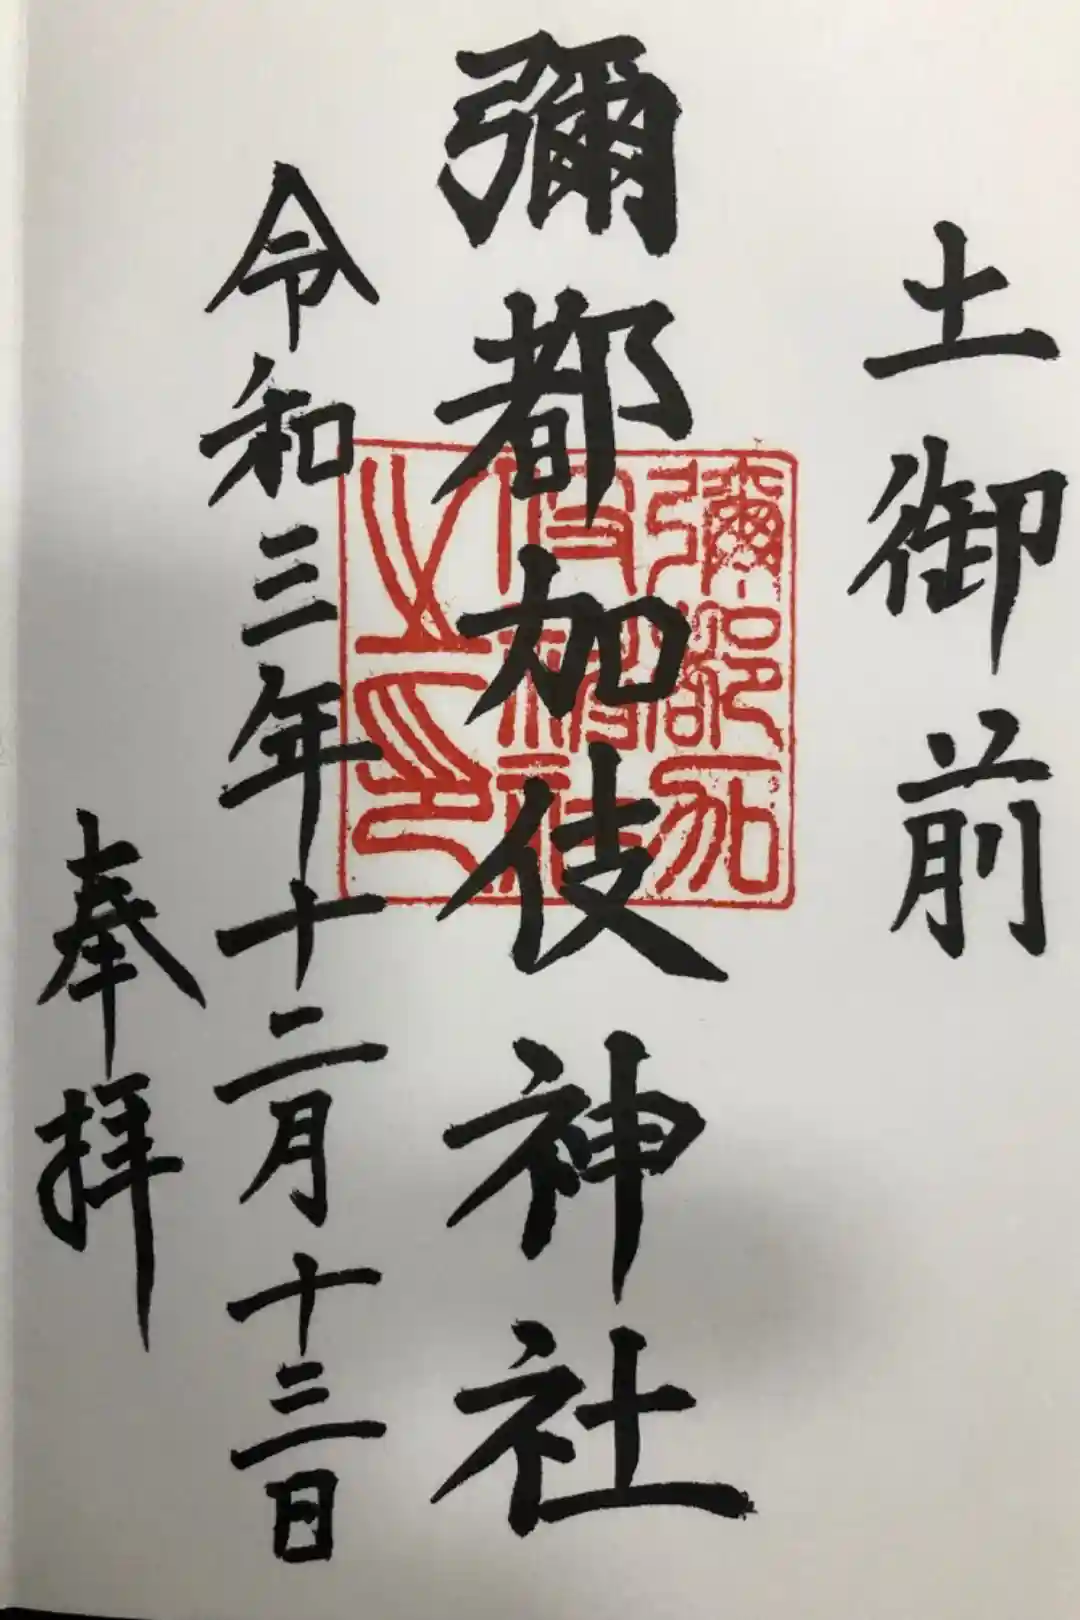 土御前
彌都加伎神社
彌都加
伎神社
之印
令和三年十二月十三日
奉拝